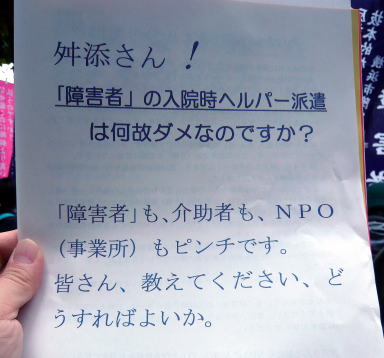 舛添さん！
「障害者」の入院時ヘルパー派遣
は何故ダメなのですか？
「障害者」も、介助者も、ＮＰＯ
（事業所）もピンチです。
皆さん、教えてください、ど
うすればよいか。